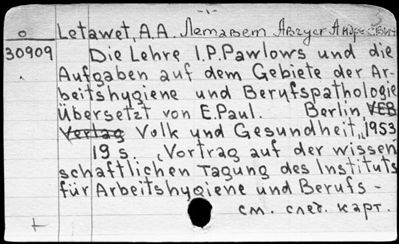 -1-
o Letawet, A.A. Летавет Август Андреевич
30909 Die Lehre I.P.Pawlows und die
Aufgaben auf dem Gebiete der Ar-
beitshygiene und Berufspathologie
Übersetzt von E.Paul. Berlin, VEB
Verlag Volk und Gesundheit, 1953
19 s. (Vortrag auf der wissen
schaftlichen Tagung des Instituts
für Arbeitshygiene und Berufs-
см. след. карт.